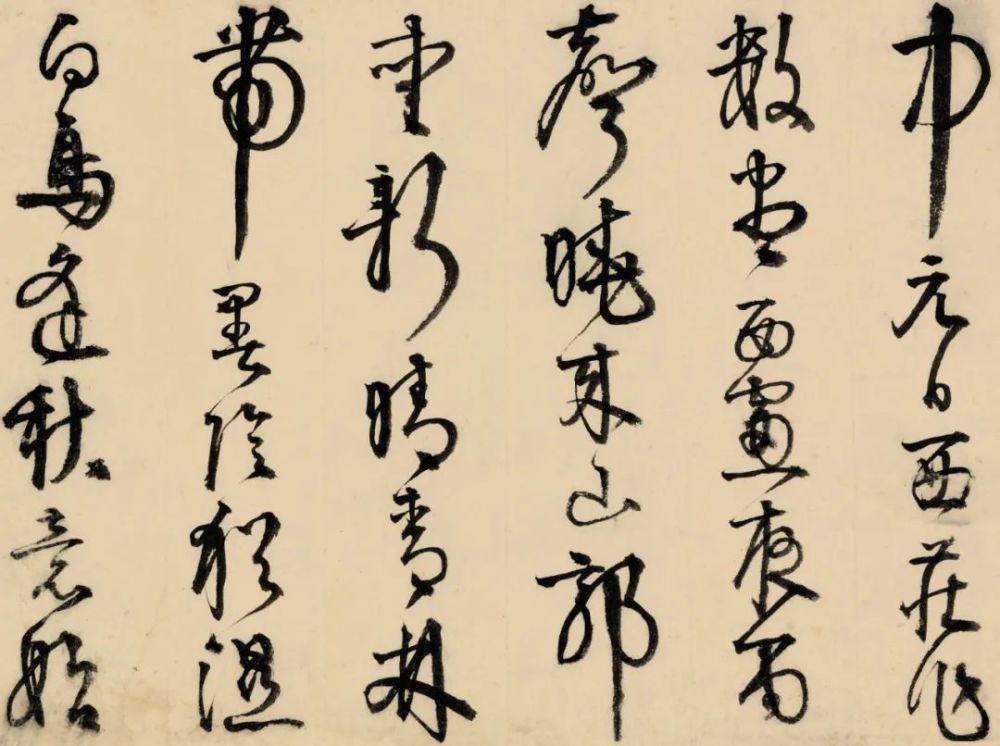 中元日西莊作
數盡西窗夜雨
聲曉來山郭
新晴青林
帶墨陰猶濕
白鳥逢秋意始